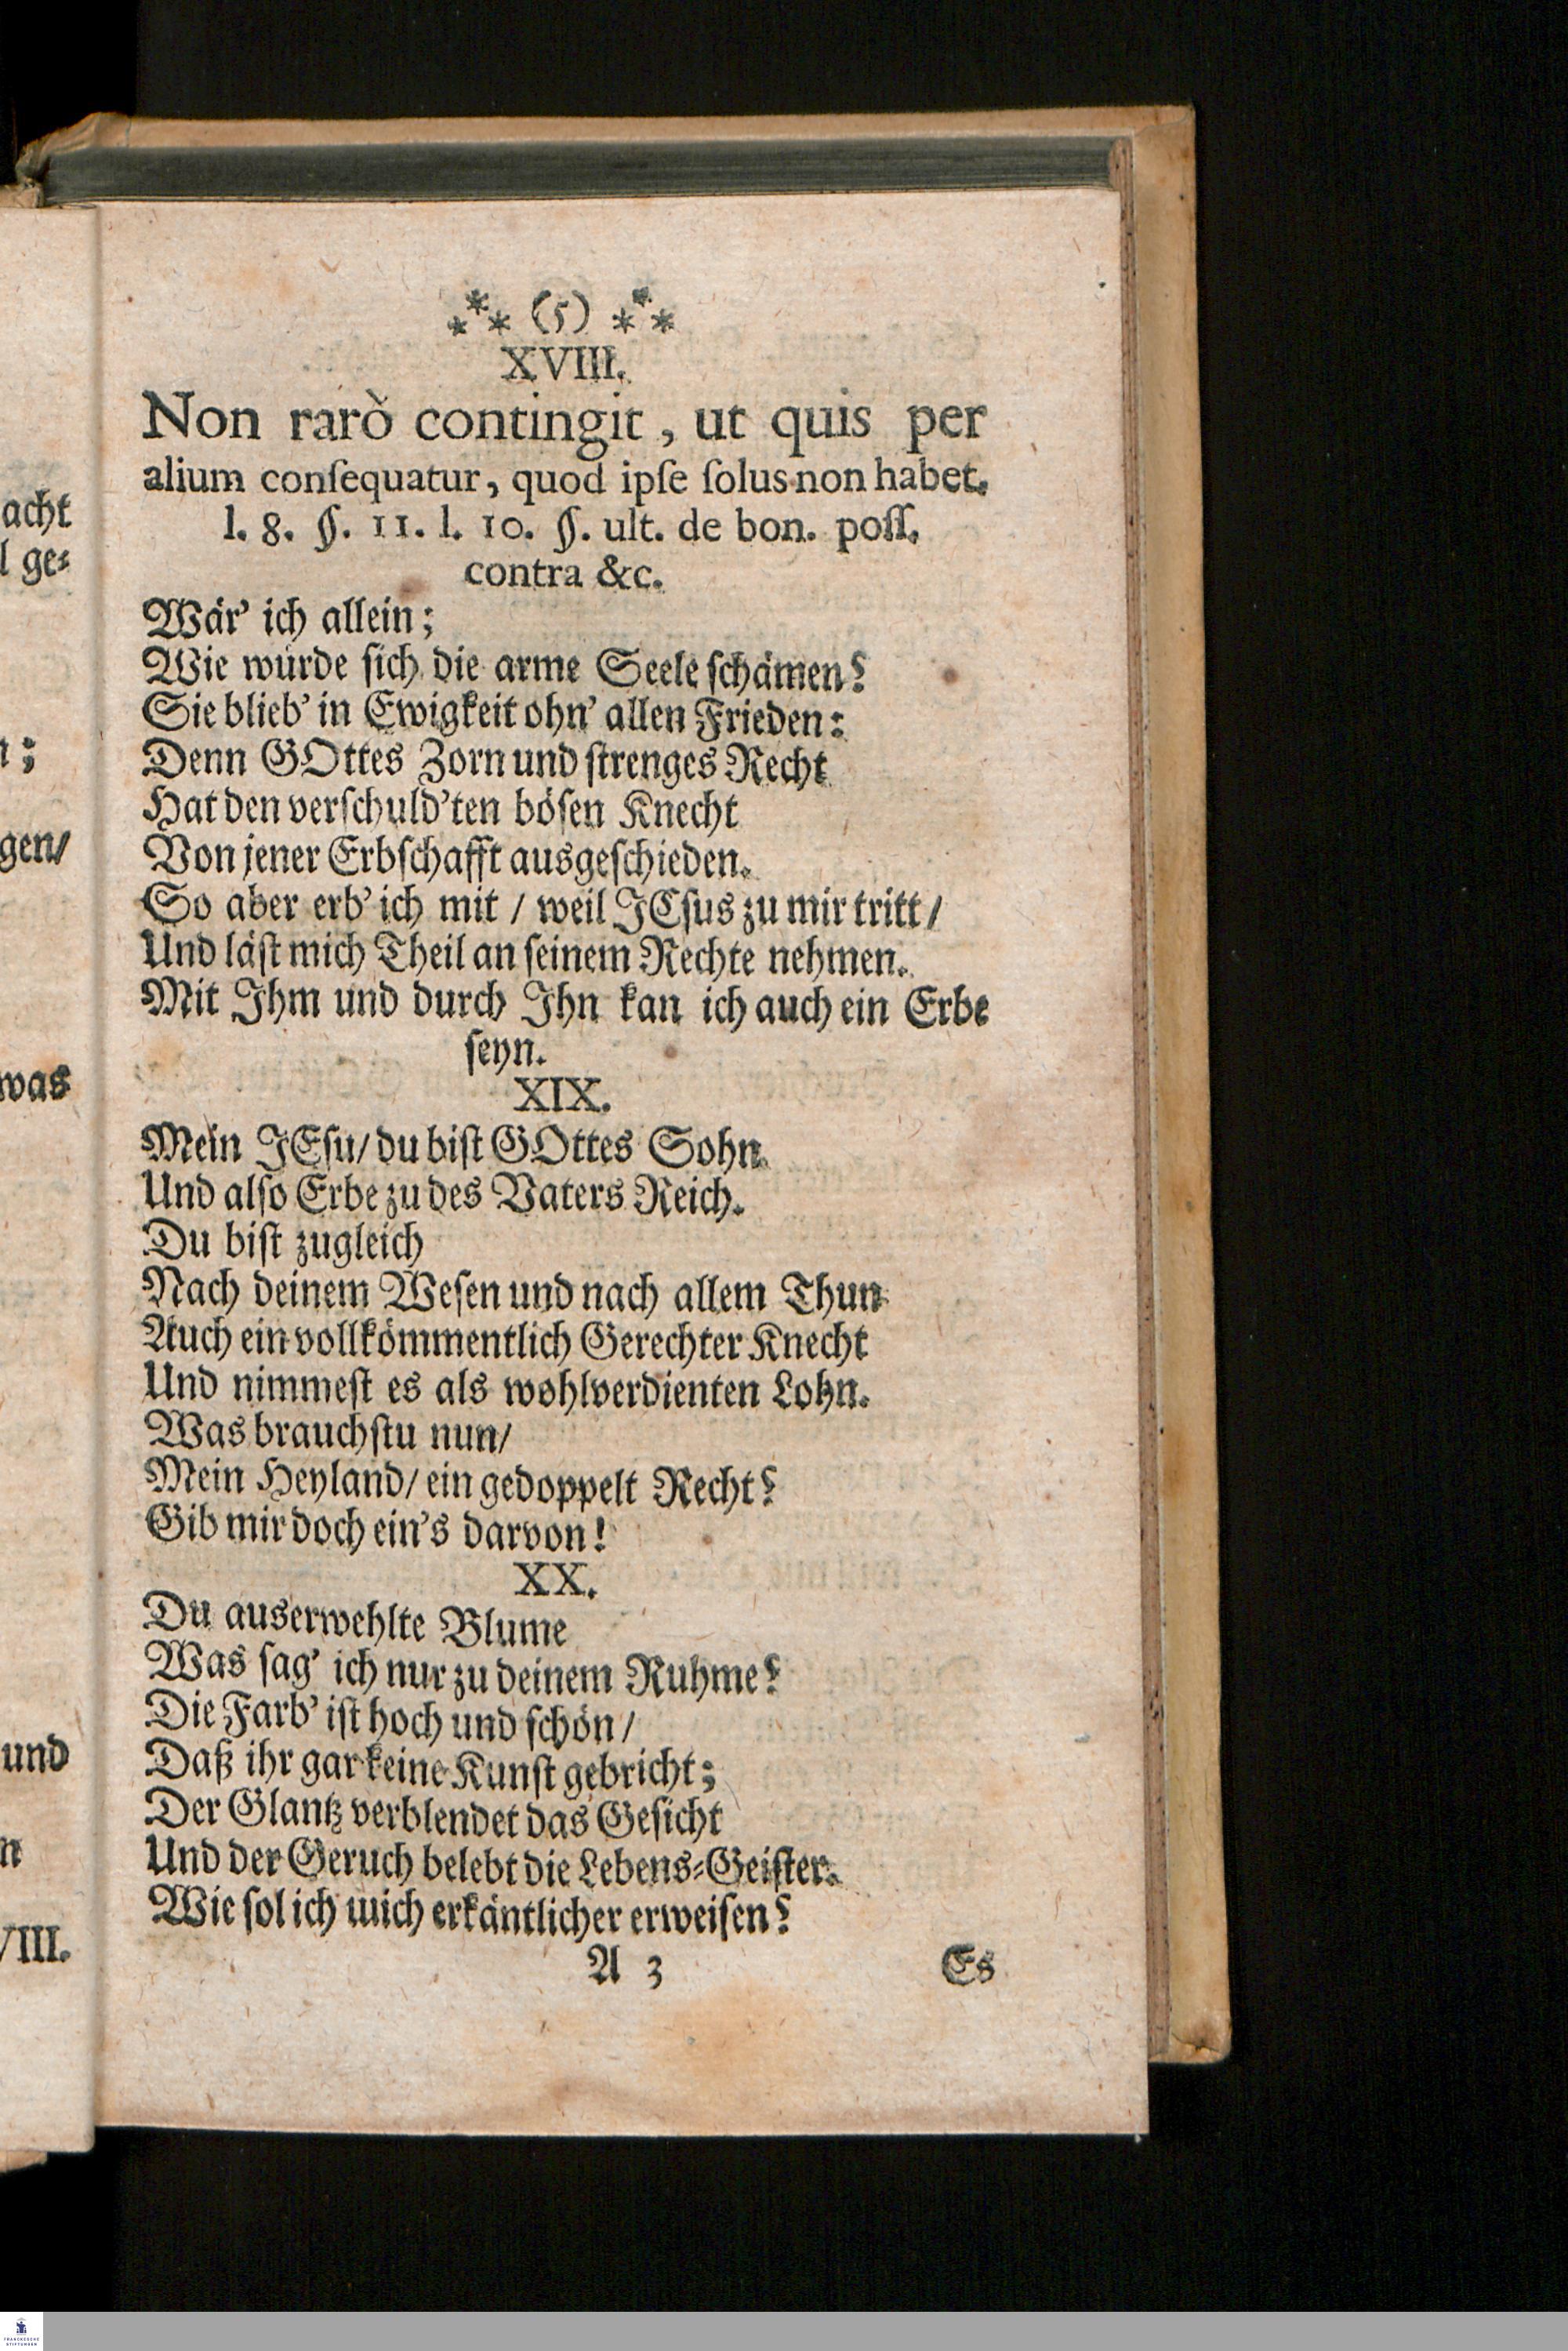 acht
l ge⸗
n;
gen/
was
und
n
VIII.
⁎*⁎ (5) ⁎*⁎
XVIII.
Non rarò contingit, ut quis per
alium conſequatur, quod ipſe ſolus non habet.
l. 8. §. 11. l. 10. §. ult. de bon. poſſ.
contra &c.
Wär' ich allein;
Wie würde ſich die arme Seele ſchämen?
Sie blieb' in Ewigkeit ohn' allen Frieden:
Denn GOttes Zorn und ſtrenges Recht
Hat den verſchuld'ten böſen Knecht
Von jener Erbſchafft ausgeſchieden.
So aber erb' ich mit / weil JEſus zu mir tritt /
Und läſt mich Theil an ſeinem Rechte nehmen.
Mit Ihm und durch Ihn kan ich auch ein Erbe
ſeyn.
XIX.
Mein JEſu/ du biſt GOttes Sohn
Und alſo Erbe zu des Vaters Reich.
Du biſt zugleich
Nach deinem Weſen und nach allem Thun
Auch ein vollkömmentlich Gerechter Knecht
Und nimmeſt es als wohlverdienten Lohn.
Was brauchſtu nun/
Mein Heyland/ ein gedoppelt Recht?
Gib mir doch ein's darvon!
XX.
Du auserwehlte Blume
Was ſag' ich nur zu deinem Ruhme?
Die Farb' iſt hoch und ſchön /
Daß ihr gar keine Kunſt gebricht;
Der Glantz verblendet das Geſicht
Und der Geruch belebt die Lebens⸗Geiſter.
Wie ſol ich mich erkäntlicher erweiſen?
A 3 Es
FRANCKESCHE
STIFTUNGEN